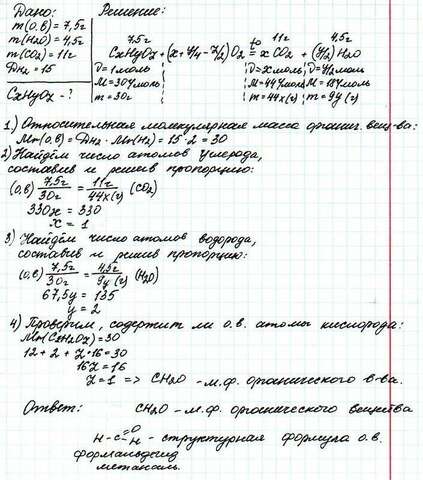 Дано:
m(о.в)=7,5г
m(H2O)=4,5г
m(CO2)=11г
DH2=15
CxHyOz-?
Решение:
7,5г 11г 4,5г
CxHyOz+(x+y/4-z/2)O2 t° = xCO2 + (y/2)H2O
ν=1моль ν=xмоль ν=y/2моль
M=30г/моль M=44г/моль M=18г/моль
m=30г m=44x(г) m=9y(г)
1.) Относительная молекулярная масса органич. вещ-ва:
Mr(о.в)=DH2·Mr(H2)=15·2=30
2) Найдём число атомов углерода,
составив и решив пропорцию:
(о.в) 7,5г/30г = 11г/44x(г) (CO2)
330x=330
x=1
3) Найдём число атомов водорода,
составив и решив пропорцию:
(о.в) 7,5г/30г = 4,5г/9y(г) (H2O)
67,5y=135
y=2
4) Проверим, содержит ли о.в. атомы кислорода:
Mr(CH2Oz)=30
12+2+z·16=30
16z=16
z=1 => CH2O -м.ф. органического в-ва.
Ответ: CH2O-м.ф. органического вещества
H-C=O H - структурная формула о.в.
формальдегид
метаналь.